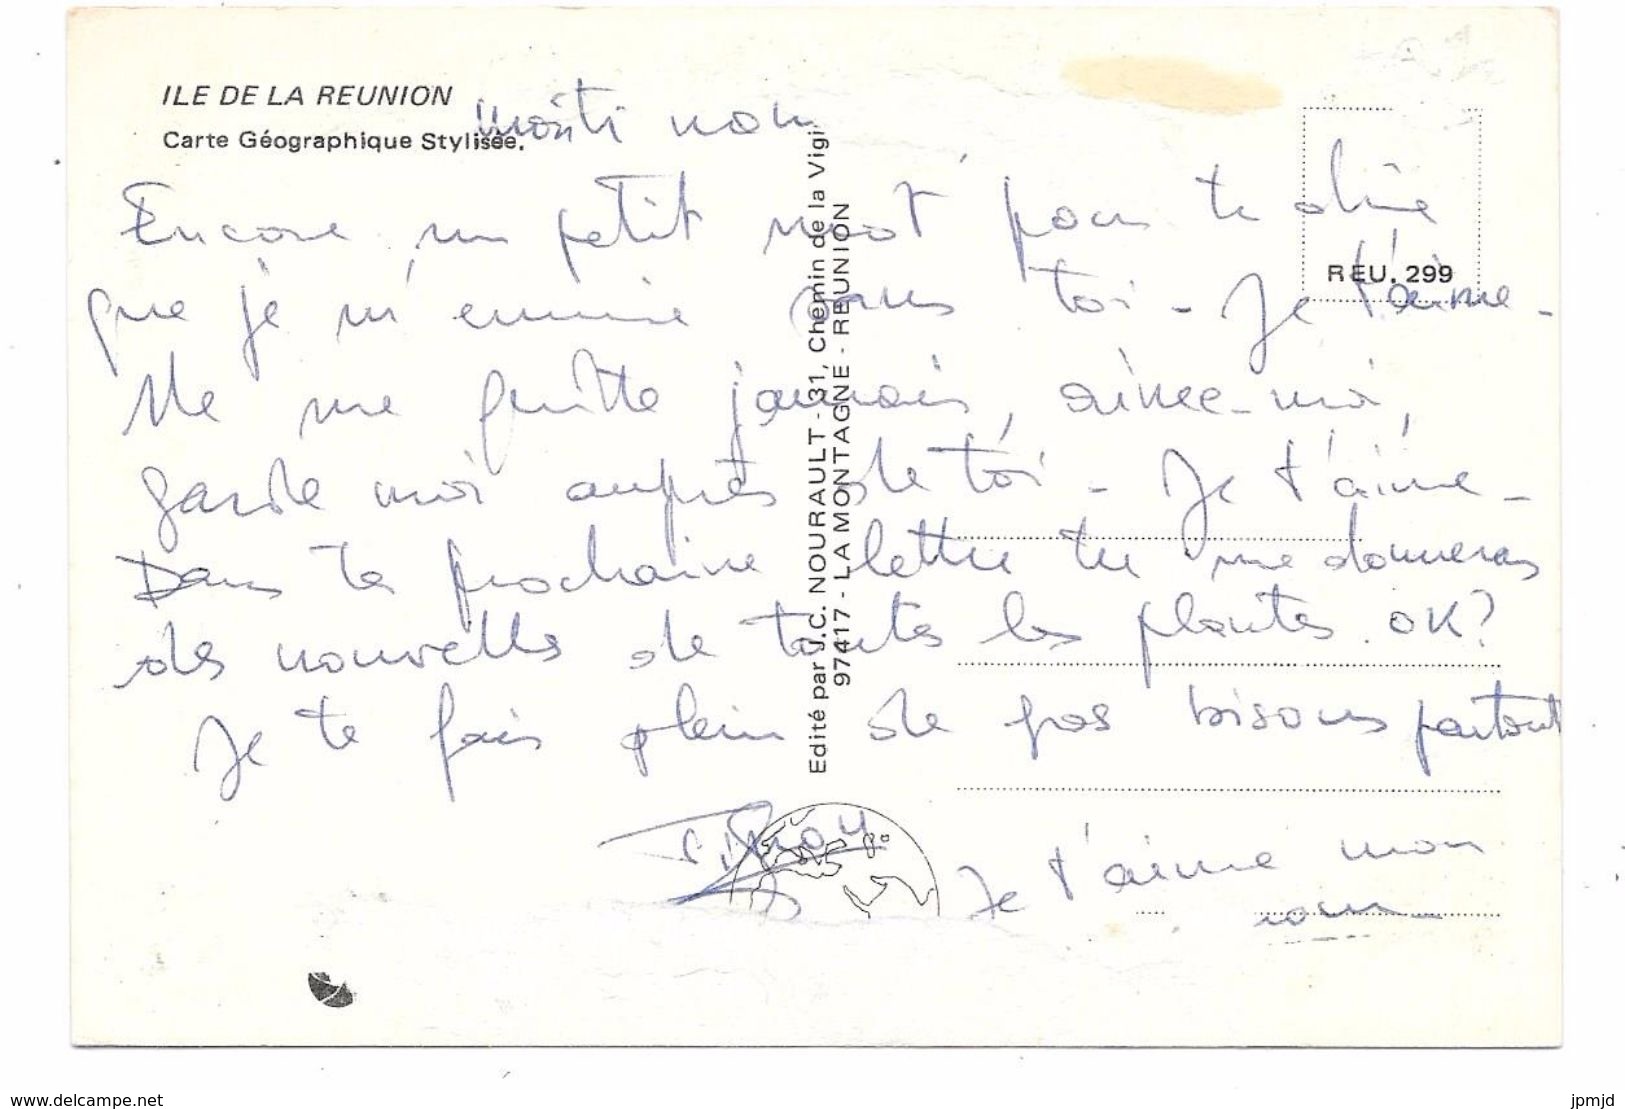 ILE DE LA REUNION
Carte Géographique Stylisée.
Encore un petit mot pour te dire
que je m'ennuie sans toi - Je t'aime -
Ne me quitte jamais, aime-moi,
garde moi auprès de toi - Je t'aime -
Dans ta prochaine lettre tu me donneras
des nouvelles de toutes les plantes. OK?
Je te fais plein de gos bisous partout
Je t'aime mon
REU. 299
Edité par J.C. NOURAULT - 31, Chemin de la Vigi
97417 - LA MONTAGNE - REUNION
www.delcampe.net
jpmjd